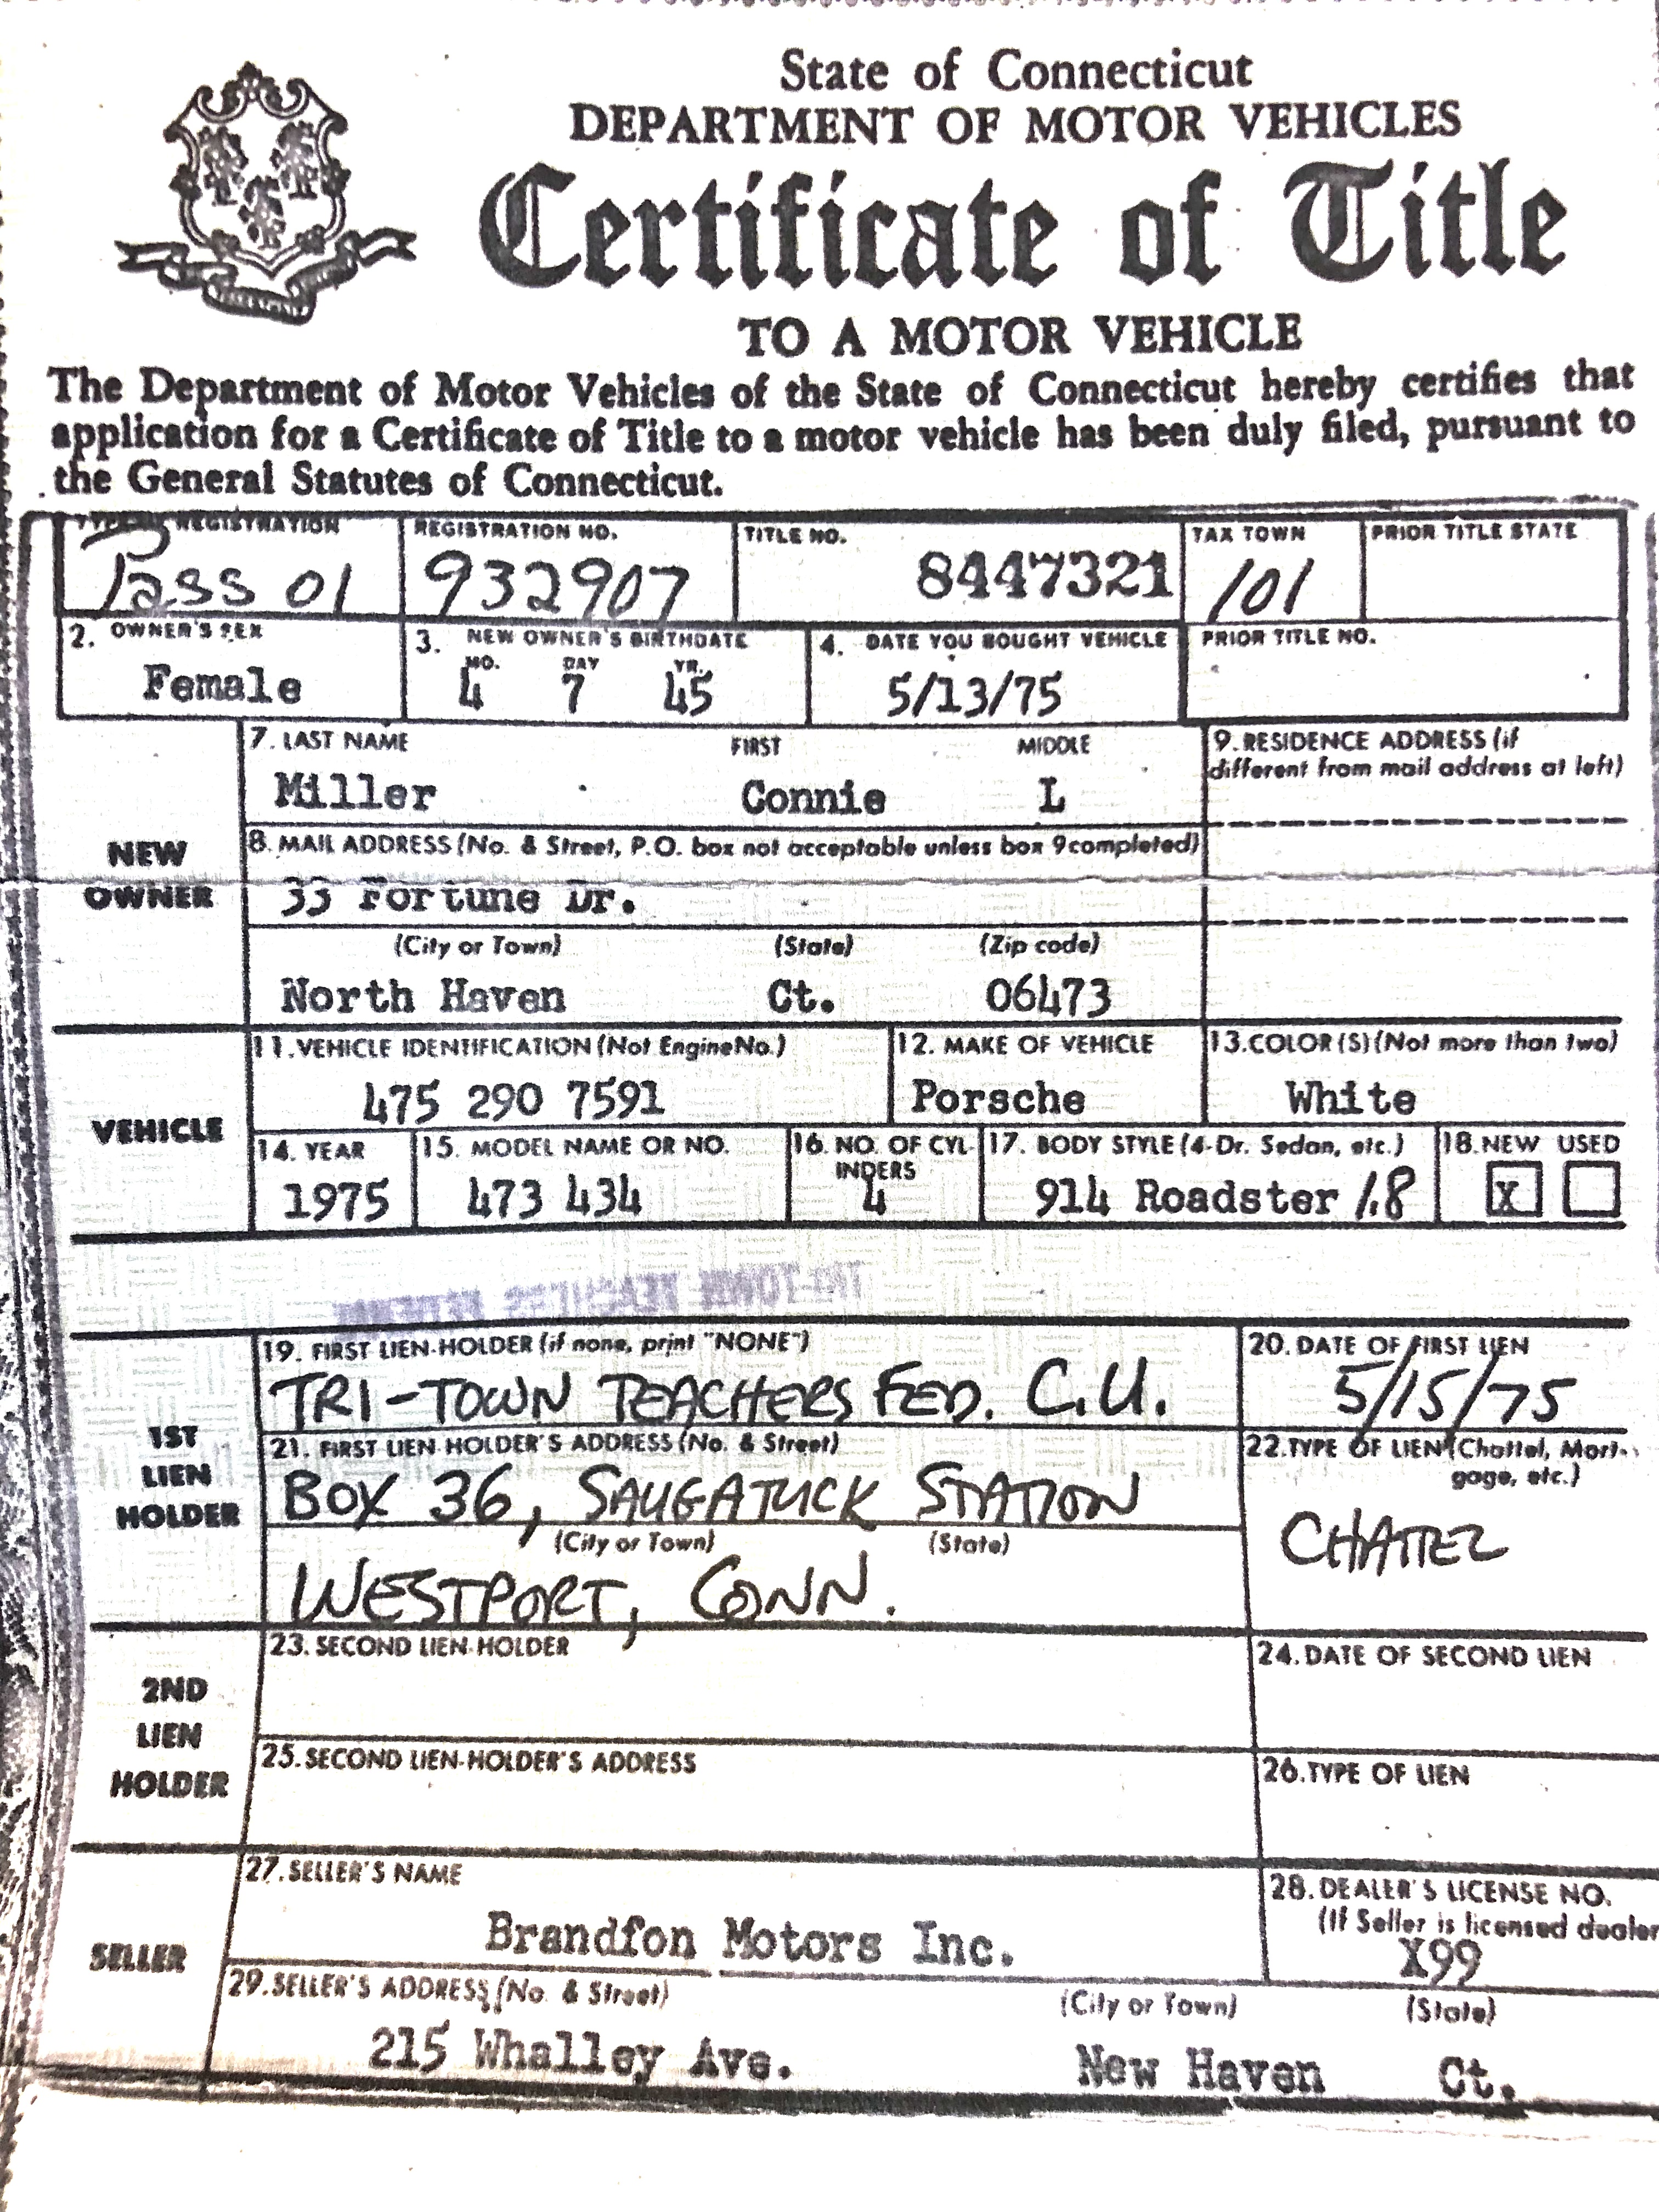 State of Connecticut
DEPARTMENT OF MOTOR VEHICLES
Certificate of Title
TO A MOTOR VEHICLE
The Department of Motor Vehicles of the State of Connecticut hereby certifies that
application for a Certificate of Title to a motor vehicle has been duly filed, pursuant to
the General Statutes of Connecticut.
TYPE REGISTRATION REGISTRATION NO. TITLE NO. TAX TOWN PRIOR TITLE STATE
Pass 01 932907 8447321 101
2. OWNER'S SEX 3. NEW OWNER'S BIRTHDATE 4. DATE YOU BOUGHT VEHICLE PRIOR TITLE NO.
MO. DAY YR.
Female 4 7 45 5/13/75
7. LAST NAME FIRST MIDDLE 9. RESIDENCE ADDRESS (if
different from mail address at left)
Miller Connie L
NEW
OWNER
8. MAIL ADDRESS (No. & Street, P.O. box not acceptable unless box 9 completed)
33 Fortune Dr.
(City or Town) (State) (Zip code)
North Haven Ct. 06473
VEHICLE
11. VEHICLE IDENTIFICATION (Not Engine No.) 12. MAKE OF VEHICLE 13. COLOR (S) (Not more than two)
475 290 7591 Porsche White
14. YEAR 15. MODEL NAME OR NO. 16. NO. OF CYL- 17. BODY STYLE (4-Dr. Sedan, etc.) 18. NEW USED
INDERS
1975 473 434 4 914 Roadster 1.8 X
19. FIRST LIEN-HOLDER (if none, print "NONE") 20. DATE OF FIRST LIEN
TRI-TOWN TEACHERS FED. C.U. 5/15/75
1ST
LIEN
HOLDER
21. FIRST LIEN HOLDER'S ADDRESS (No. & Street) 22. TYPE OF LIEN (Chattel, Mort-
gage, etc.)
BOX 36, SAUGATUCK STATION
(City or Town) (State)
CHATTEL
WESTPORT, CONN.
2ND
LIEN
HOLDER
23. SECOND LIEN-HOLDER 24. DATE OF SECOND LIEN
25. SECOND LIEN-HOLDER'S ADDRESS 26. TYPE OF LIEN
SELLER
27. SELLER'S NAME 28. DEALER'S LICENSE NO.
(If Seller is licensed dealer
Brandfon Motors Inc. X99
29. SELLER'S ADDRESS (No. & Street) (City or Town) (State)
215 Whalley Ave. New Haven Ct.